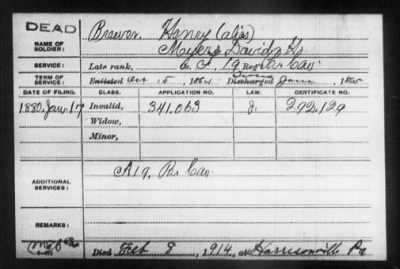 DEAD
NAME OF SOLDIER:
Brewer, Henry (alias)
Myers David H
SERVICE:
Late rank, Co. A, 19 Reg't Pa Cav
TERM OF SERVICE:
Enlisted Oct 15, 1864
Discharged June, 1865
DATE OF FILING.
CLASS.
APPLICATION NO.
LAW.
CERTIFICATE NO.
1880, Jan. 17
Invalid,
341,063
J.
292,129
Widow,
Minor,
ADDITIONAL SERVICES:
A 19, Pa Cav
REMARKS:
Died Feb 9, 1914, at Harrisonville Pa